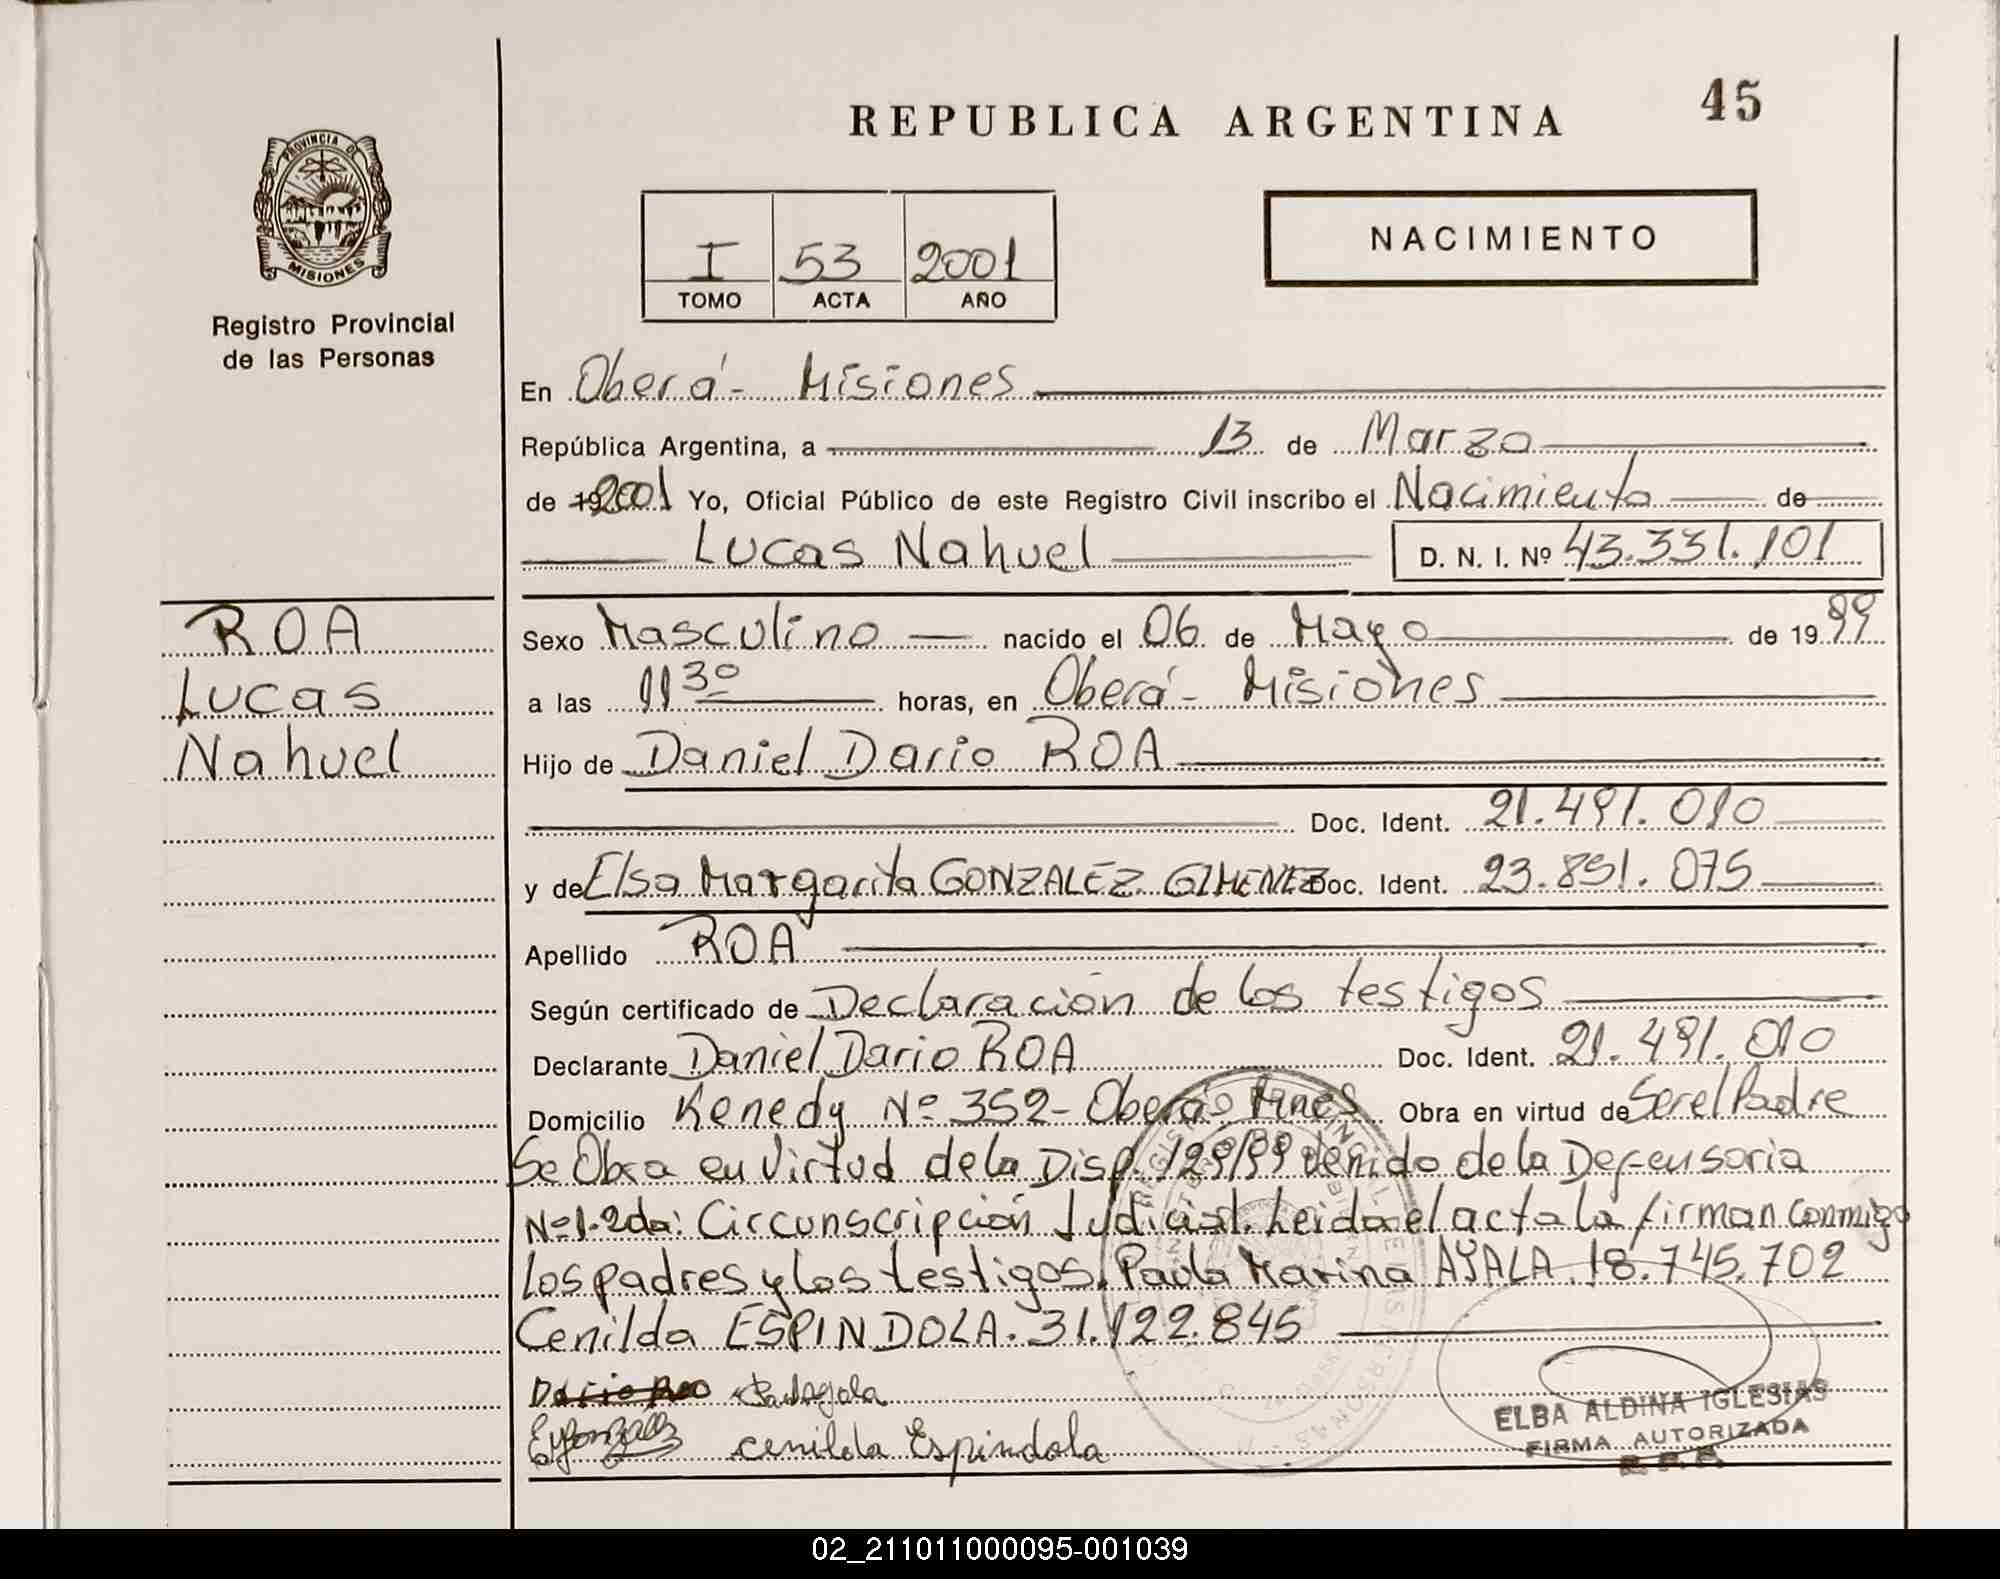 45
REPUBLICA ARGENTINA
PROVINCIA DE
MISIONES
Registro Provincial
de las Personas
I 53 2001
TOMO ACTA AÑO
NACIMIENTO
En Oberá - Misiones
República Argentina, a 13 de Marzo
de 19 2001 Yo, Oficial Público de este Registro Civil inscribo el Nacimiento de
Lucas Nahuel D. N. I. Nº 43.331.101
ROA
Lucas
Nahuel
Sexo Masculino nacido el 06 de Mayo de 1999
a las 11 30 horas, en Oberá - Misiones
Hijo de Daniel Dario ROA
Doc. Ident. 21.491.010
y de Elsa Margarita GONZALEZ GIMENEZ Doc. Ident. 23.851.075
Apellido ROA
Según certificado de Declaración de los testigos
Declarante Daniel Dario ROA Doc. Ident. 21.491.010
Domicilio Kenedy Nº 352 - Oberá - Mnes Obra en virtud de Ser el Padre
Se Obra en Virtud de la Disp. 129/99 Venido de la Defensoria
Nº1. 2da: Circunscripción Judicial. Leida el acta la firman conmigo
Los padres y los testigos. Paula Marina AYALA. 18.745.702
Cenilda ESPINDOLA. 31.122.845
cenilda Espindola
ELBA ALDINA IGLESIAS
FIRMA AUTORIZADA
R. P. P.
02_211011000095-001039